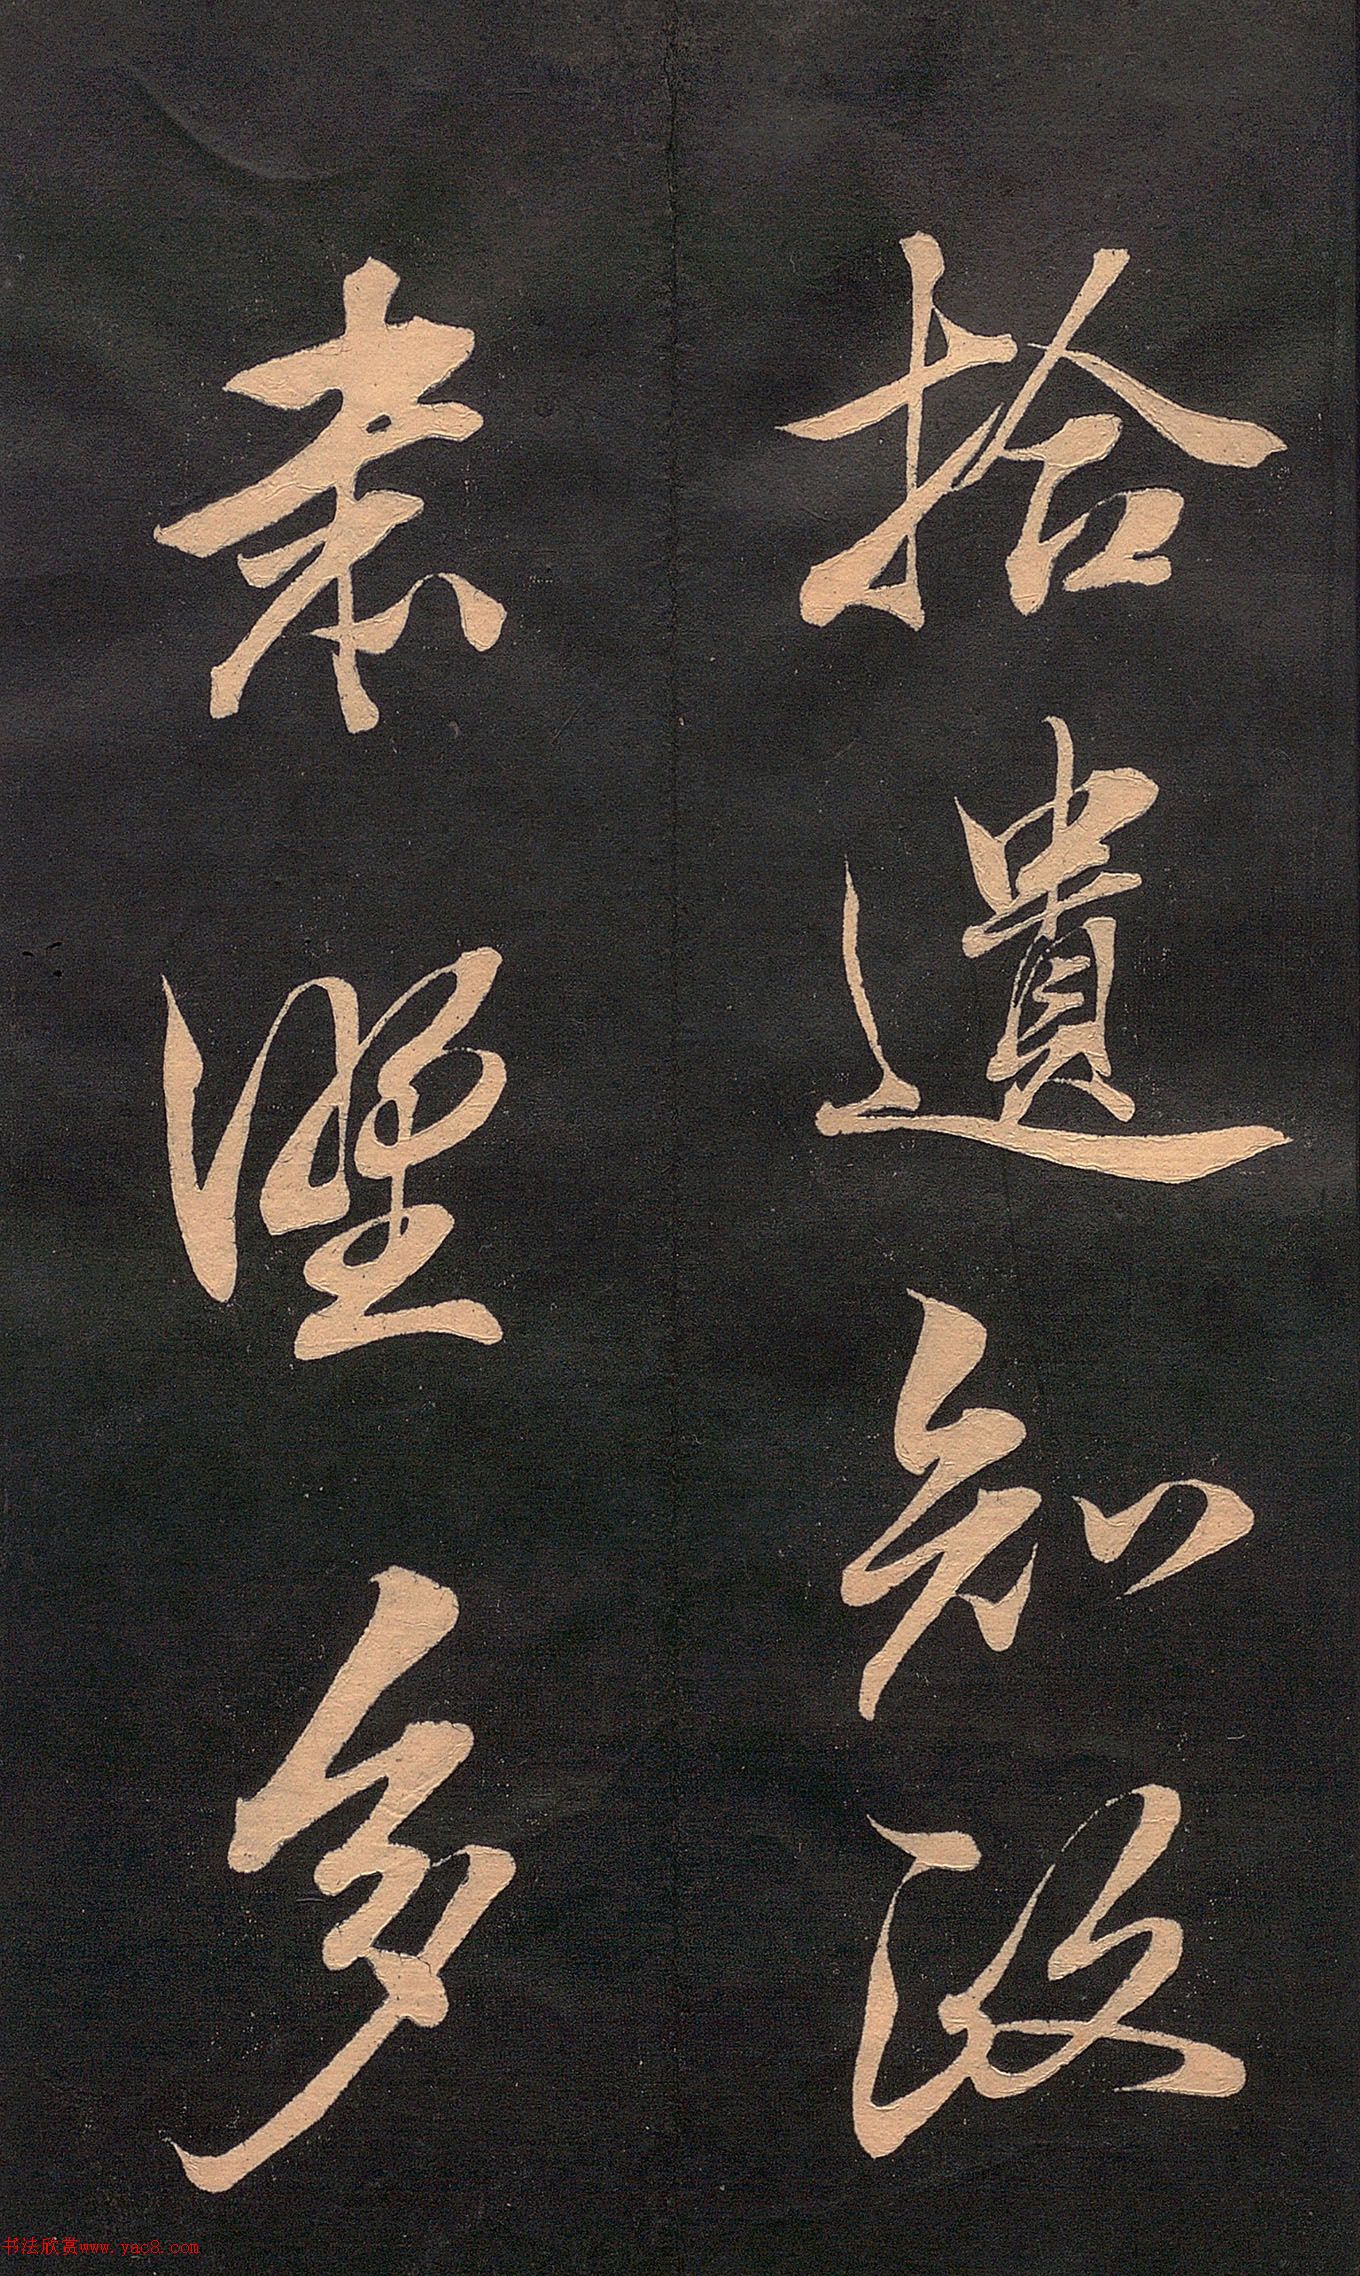 拾遺知改
素堅多
书法欣赏www.yac8.com